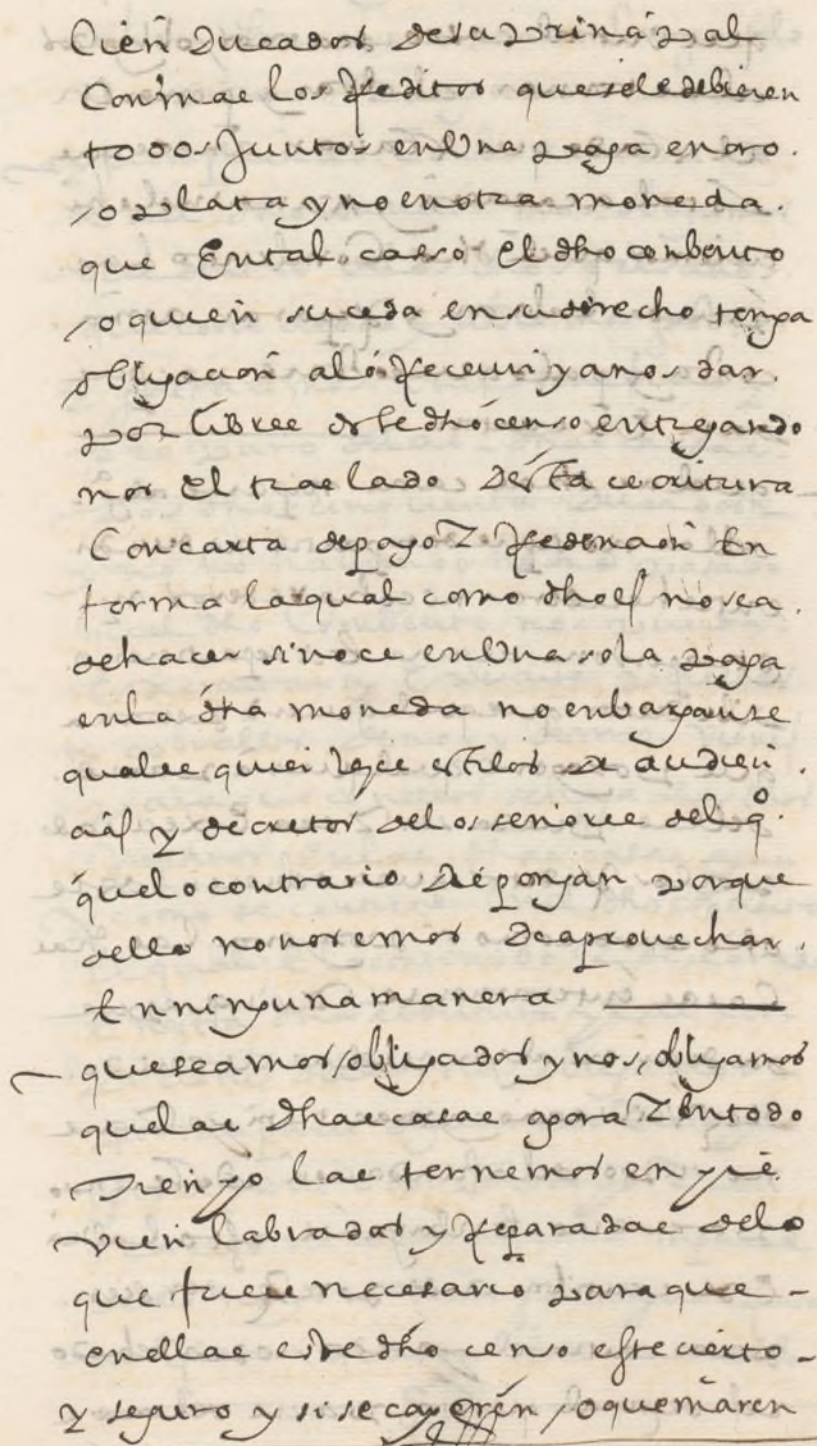 Cien ducados de su prinçipal
Con mas los Reditos que se le debieren
todos Juntos en Una paga en oro
o plata y no en otra moneda
que En tal casso El dho conbento
o quien suceda en su derecho tenga
obligacion a los Receuir y a nos dar
por libres deste dho censo entregando
nos El traslado desta escritura
Con carta de pago Z Redencion En
forma la qual como dho es no sea
de hacer sino es en Una sola paga
en la dha moneda no enbargante
quales quier leyes estilos de audien
cias y decretos de los señores del qº
que lo contrario dispongan porque
dello no nos emos de aprouechar
En ninguna manera
que seamos obligados y nos obligamos
que las dhas casas agora Z En todo
tienpo las ternemos en pie
vien labradas y Reparadas de lo
que fuere necesario para que
en ellas este dho censo este cierto
y seguro y si se cayeren o quemaren